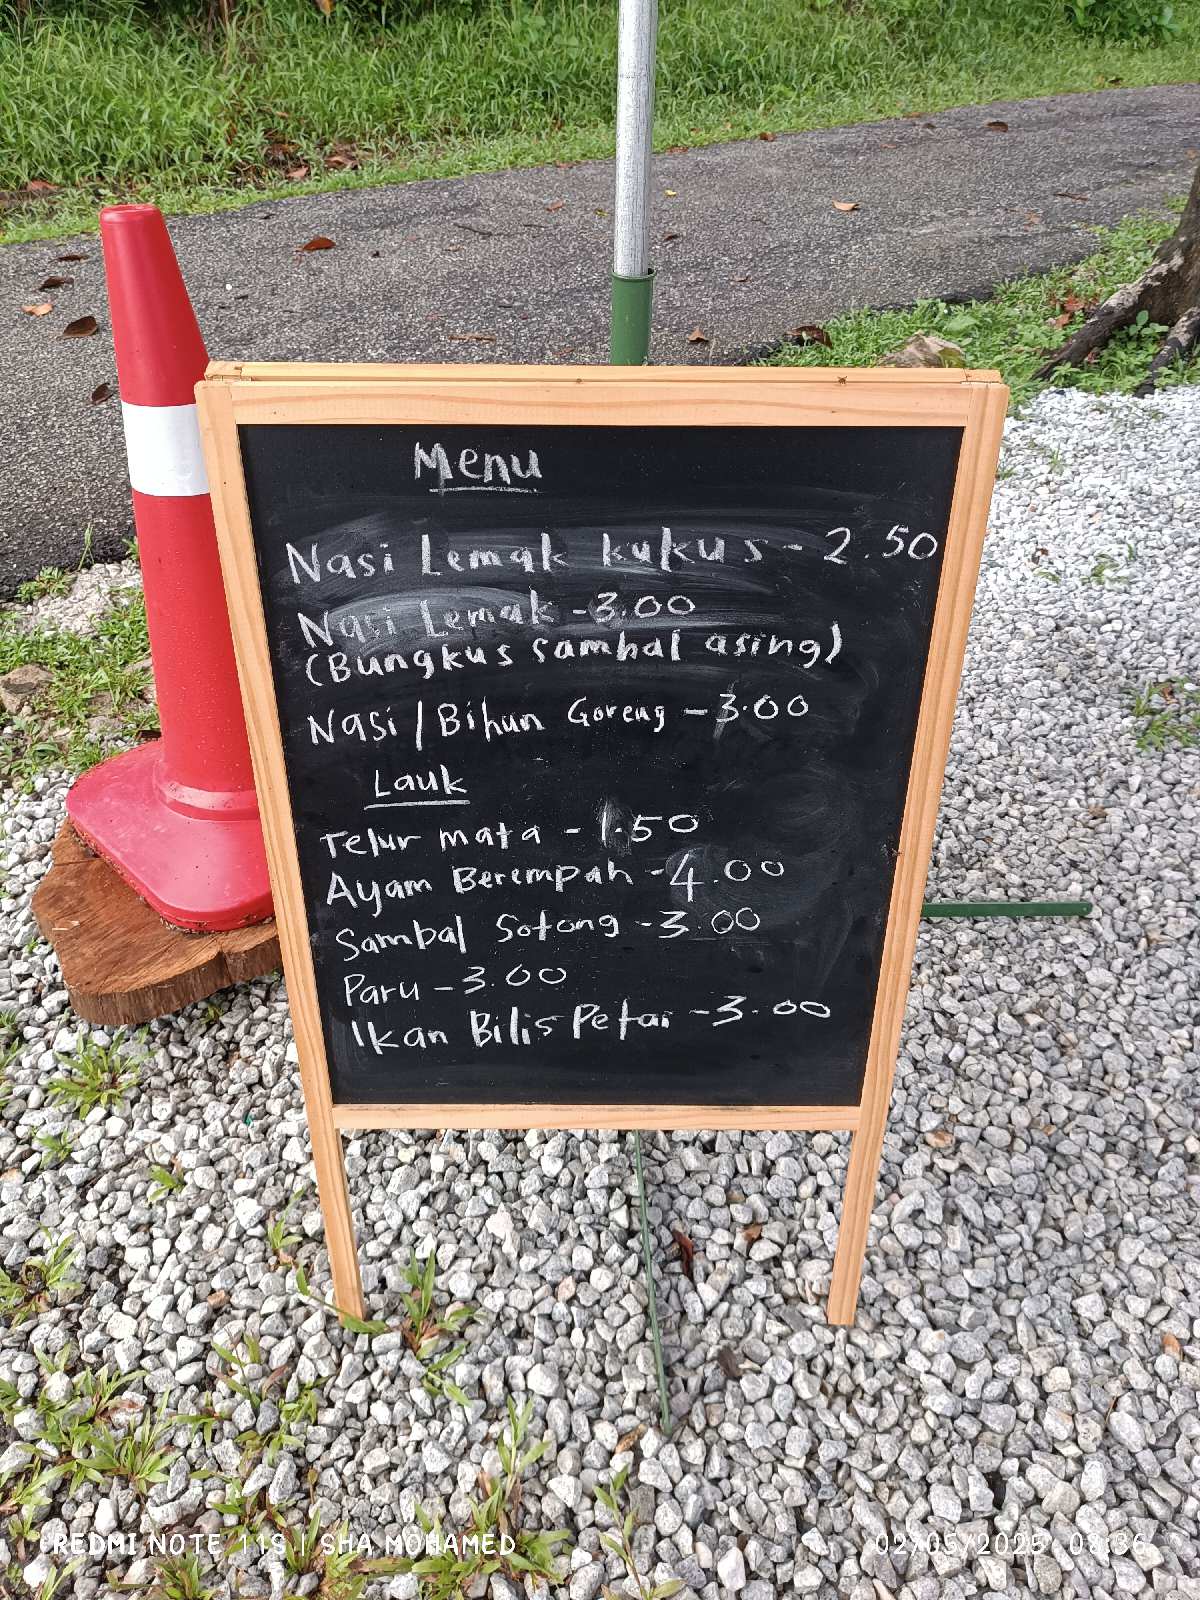 Menu
Nasi Lemak kukus - 2.50
Nasi Lemak - 3.00
(Bungkus sambal asing)
Nasi/Bihun Goreng - 3.00
Lauk
Telur mata - 1.50
Ayam Berempah - 4.00
Sambal Sotong - 3.00
Paru - 3.00
Ikan Bilis Petai - 3.00
REDMI NOTE 11S | SHA MOHAMED
02/05/2025 08:36